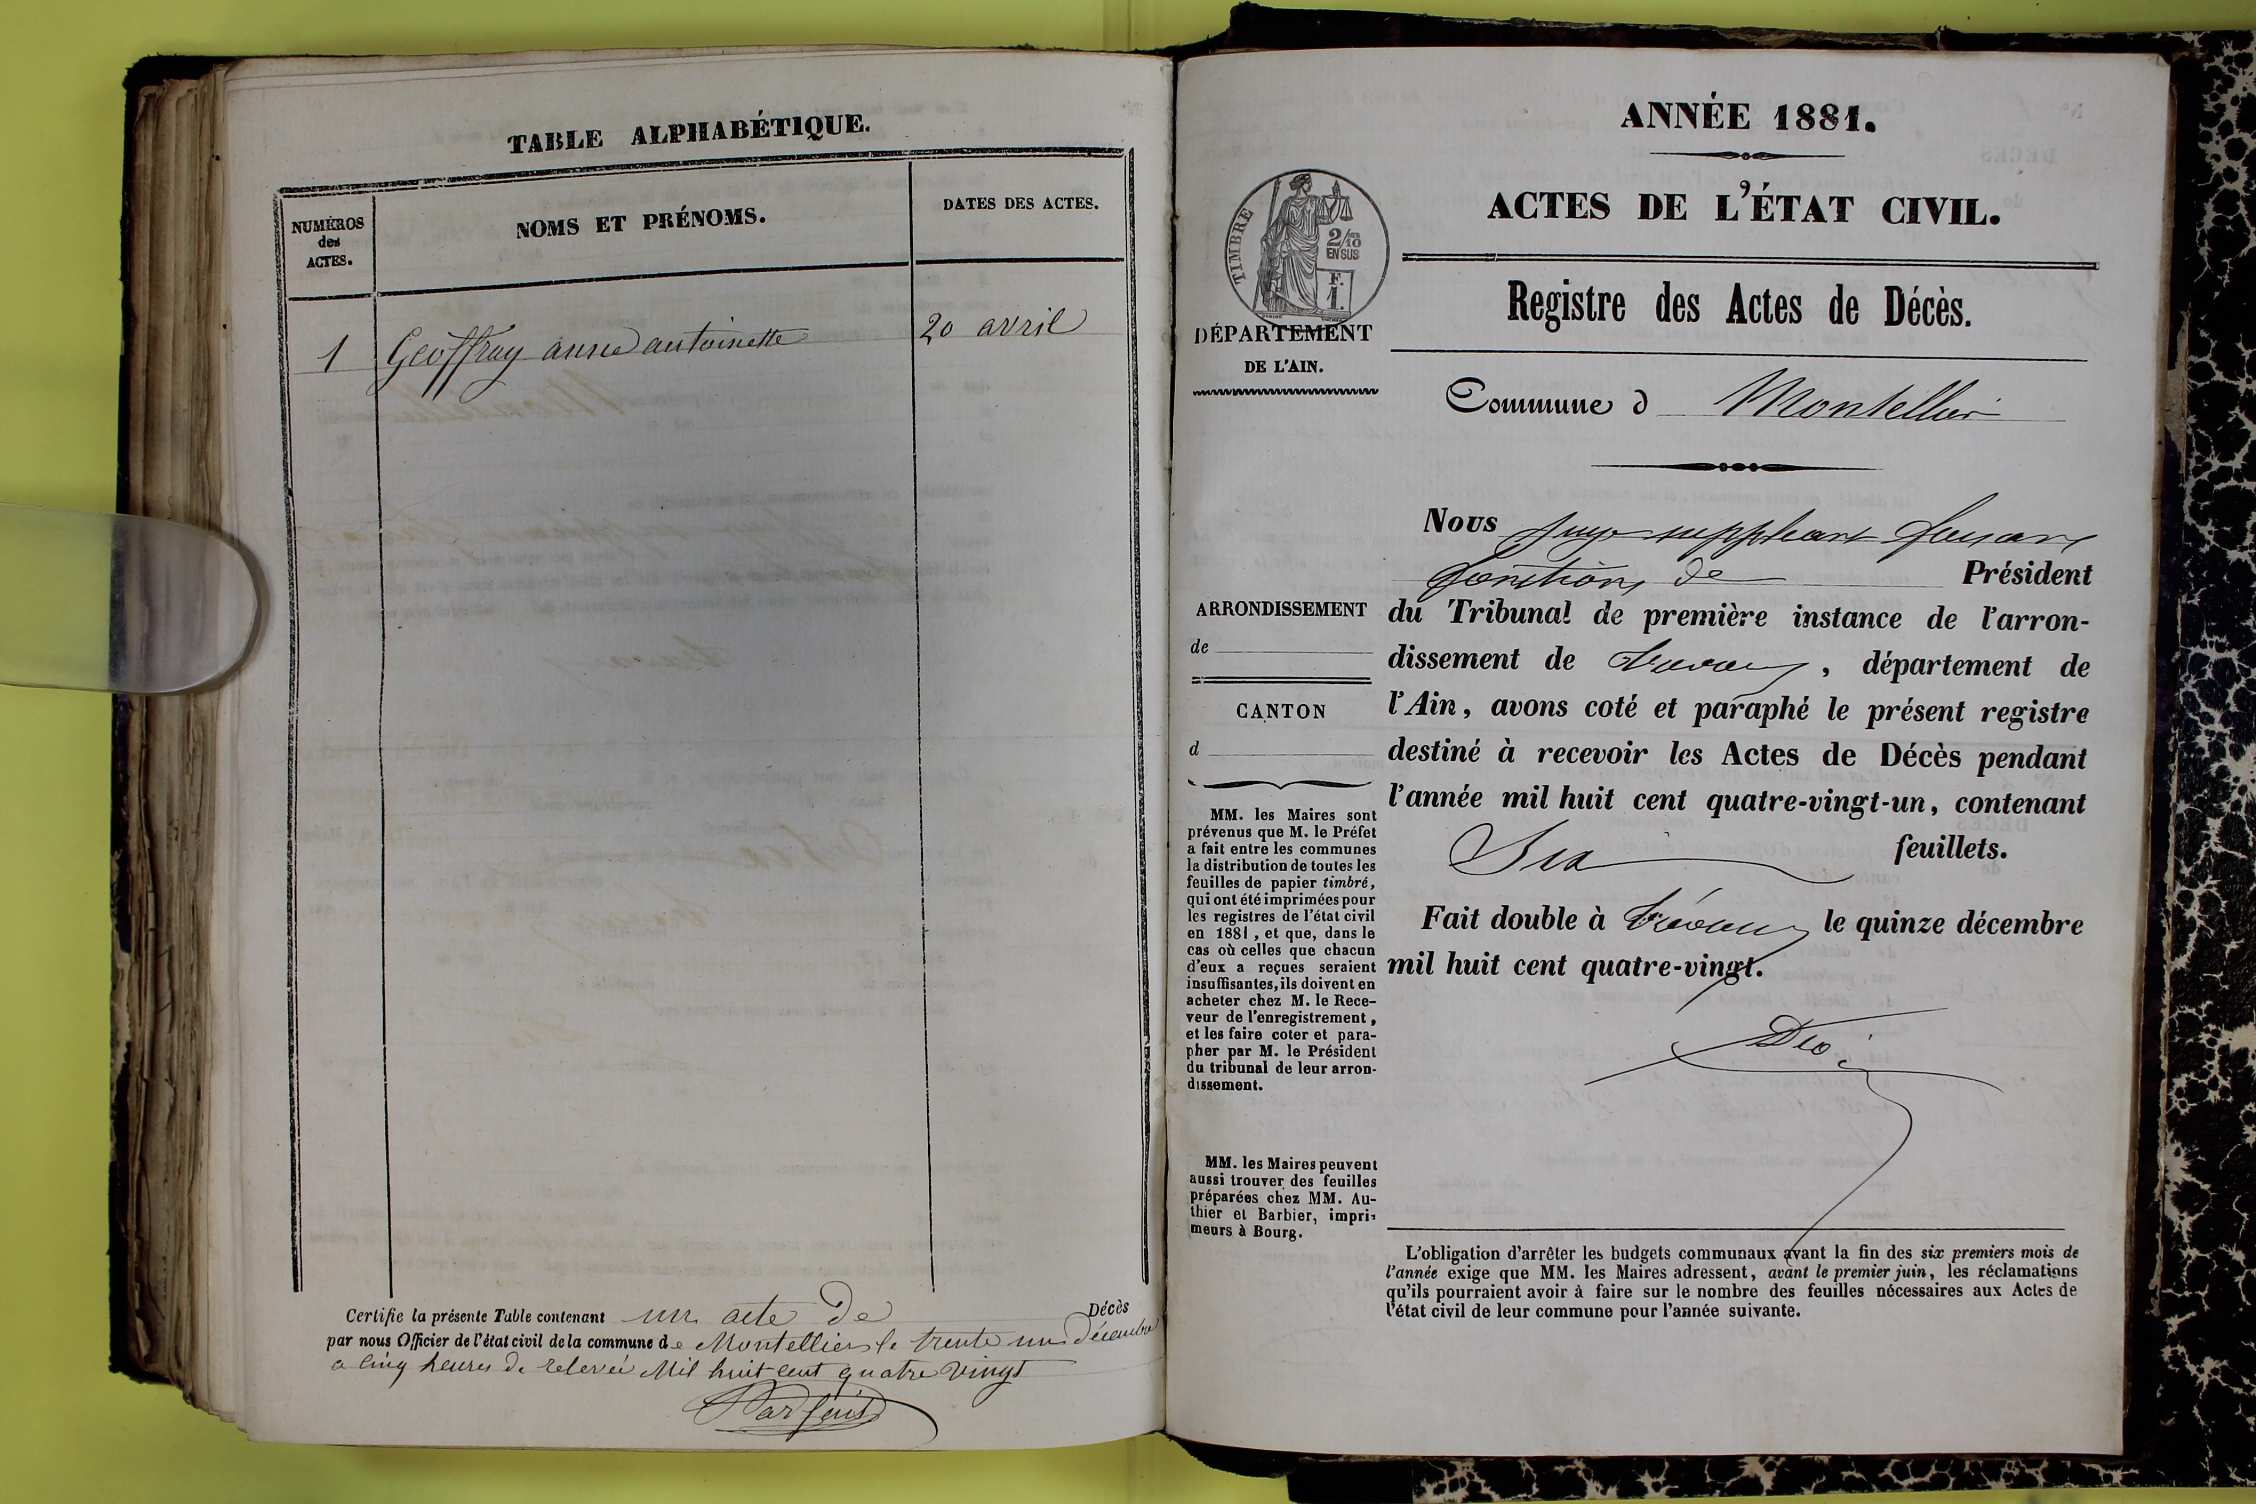 TABLE ALPHABÉTIQUE.
NUMÉROS
des
ACTES.
NOMS ET PRÉNOMS.
DATES DES ACTES.
1 Geoffray anne antoinette 20 avril
Certifie la présente Table contenant un acte de Décès
par nous Officier de l'état civil de la commune de Montellier le trente un décembre
a cinq heures de relevée Mil huit cent quatre vingt
ANNÉE 1881.
ACTES DE L'ÉTAT CIVIL.
TIMBRE
2/10
EN SUS
F.
1.
DÉPARTEMENT
DE L'AIN.
Registre des Actes de Décès.
Commune d Montellier
Nous juge suppléant faisant
fonctions de Président
du Tribunal de première instance de l'arron-
dissement de Trévoux, département de
l'Ain, avons coté et paraphé le présent registre
destiné à recevoir les Actes de Décès pendant
l'année mil huit cent quatre-vingt-un, contenant
Six feuillets.
Fait double à Trévoux le quinze décembre
mil huit cent quatre-vingt.
ARRONDISSEMENT
de
CANTON
d
MM. les Maires sont
prévenus que M. le Préfet
a fait entre les communes
la distribution de toutes les
feuilles de papier timbré,
qui ont été imprimées pour
les registres de l'état civil
en 1881, et que, dans le
cas où celles que chacun
d'eux a reçues seraient
insuffisantes, ils doivent en
acheter chez M. le Rece-
veur de l'enregistrement,
et les faire coter et para-
pher par M. le Président
du tribunal de leur arron-
dissement.
MM. les Maires peuvent
aussi trouver des feuilles
préparées chez MM. Au-
thier et Barbier, impri-
meurs à Bourg.
L'obligation d'arrêter les budgets communaux avant la fin des six premiers mois de
l'année exige que MM. les Maires adressent, avant le premier juin, les réclamations
qu'ils pourraient avoir à faire sur le nombre des feuilles nécessaires aux Actes de
l'état civil de leur commune pour l'année suivante.